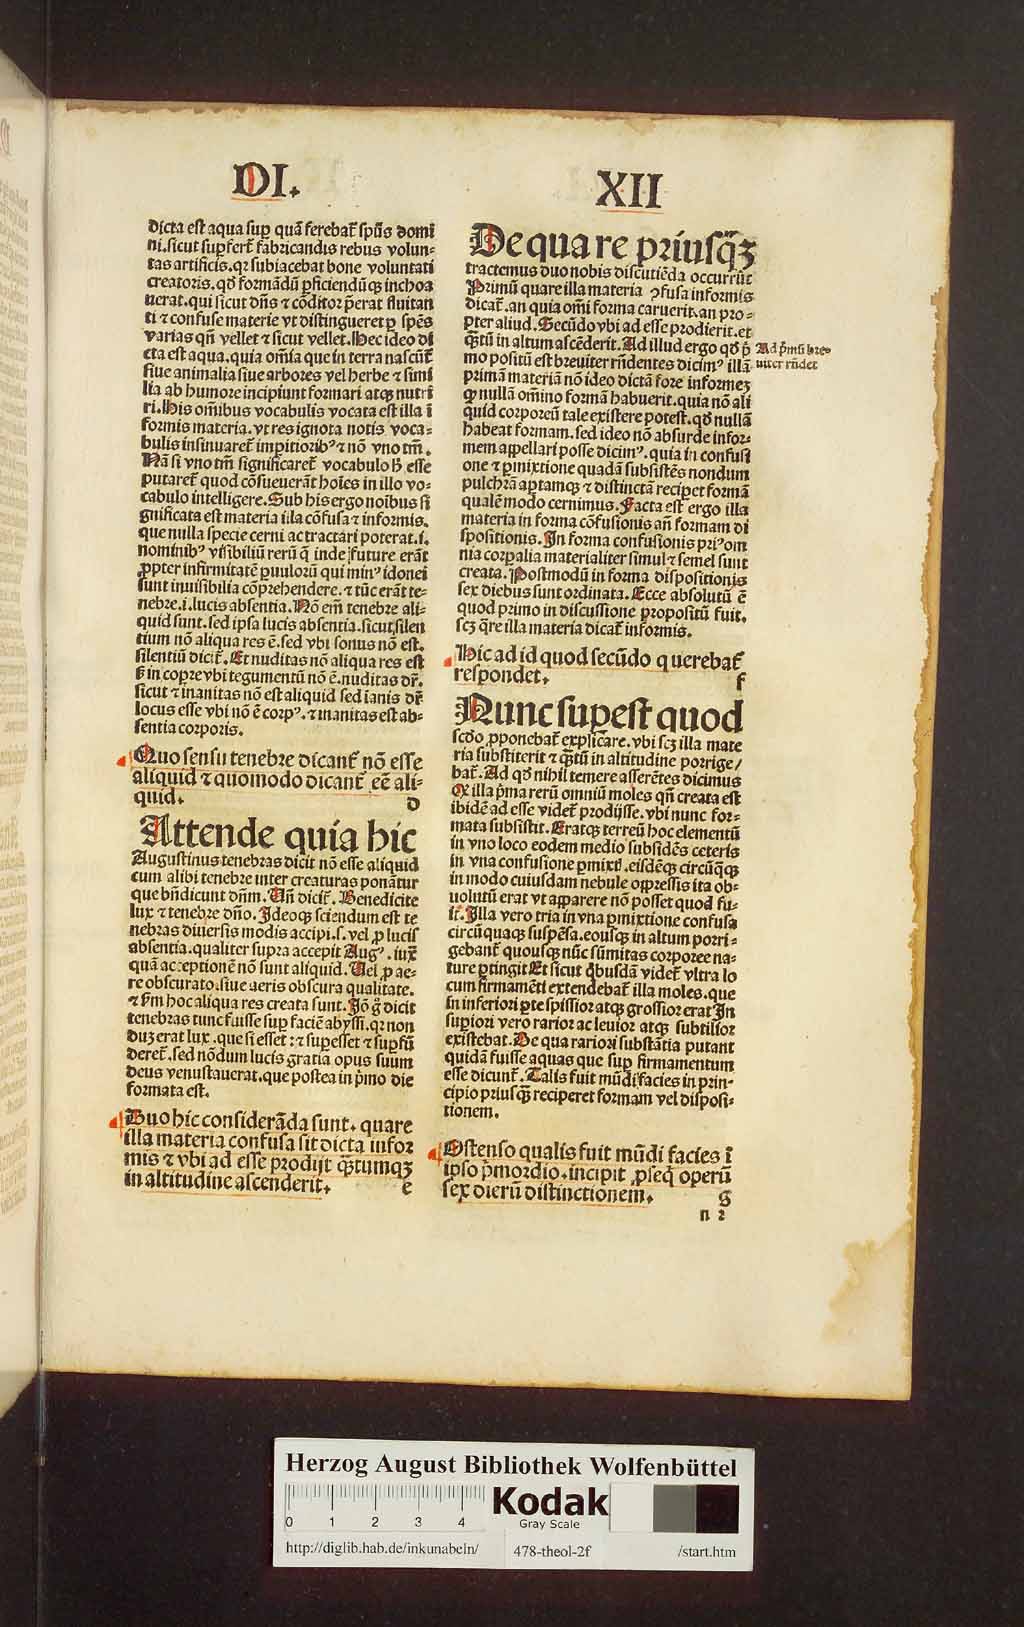 DI.
dicta est aqua sup̱ quā ferebat᷑ sp̄us domi
ni. sicut sup̱fert᷑ fabricandis rebus volun-
tas artificis. qꝛ subiacebat bone voluntati
creatoris. qđ formādū ꝑficiendūqꝫ inchoa
uerat. qui sicut dn̄s ⁊ cōditor p̄erat fluitan
ti ⁊ confuse materie vt distingueret ꝑ spēs
varias qn̄ vellet ⁊ sicut vellet. Hec ideo di
cta est aqua. quia om̄ia que in terra nascūt᷑
siue animalia siue arbores vel herbe ⁊ simi
lia ab humore incipiunt formari atqꝫ nutri
ri. His om̄ibus vocabulis vocata est illa ī
formis materia. vt res ignota notis voca-
bulis insinuaret᷑ imꝑitiorib⁹ ⁊ nō vno tm̄.
Nā si vno tm̄ significaret᷑ vocabulo h̄ esse
putaret᷑ quod cōsueuerāt hoīes in illo vo-
cabulo intelligere. Sub his ergo noībus si
gnificata est materia illa cōfusa ⁊ informis.
que nulla specie cerni ac tractari poterat. i.
nominib⁹ visibiliū rerū q̄ inde future erāt
ꝓpter infirmitatē ꝑuulorū qui min⁹ idonei
sunt inuisibilia cōprehendere. ⁊ tūc erāt te-
nebre. i. lucis absentia. Nō em̄ tenebre ali-
quid sunt. sed ipsa lucis absentia. sicut silen
tium nō aliqua res ē. sed vbi sonus nō est.
silentiū dicit᷑. Et nuditas nō aliqua res est
ſ̄ in corpe vbi tegumentū nō ē. nuditas dr̄.
sicut ⁊ inanitas nō est aliquid sed ianis dr̄
locus esse vbi nō ē corp⁹. ⁊ inanitas est ab-
sentia corporis.
Quo sensu tenebre dicant᷑ nō esse
aliquid ⁊ quomodo dicant᷑ eē ali-
quid. d
Attende quia hic
Augustinus tenebras dicit nō esse aliquid
cum alibi tenebre inter creaturas ponātur
que bn̄dicunt dn̄m. Un̄ dicit᷑. Benedicite
lux ⁊ tenebre dn̄o. Ideoqꝫ sciendum est te
nebras diuersis modis accipi. s. vel ꝓ lucis
absentia. qualiter supra accepit Aug⁹. iux̄
quā acceptionē nō sunt aliquid. Vel ꝓ ae-
re obscurato. siue aeris obscura qualitate.
⁊ ẜm hoc aliqua res creata sunt. Jō g̊ dicit
tenebras tunc fuisse sup̱ faciē abyssi. qꝛ non
duꝫ erat lux. que si esset: ⁊ sup̱esset ⁊ sup̱fū
deret᷑. sed nōdum lucis gratia opus suum
deus venustauerat. que postea in p̄mo die
formata est.
Duo hic considerāda sunt. quare
illa materia confusa sit dicta infor
mis ⁊ vbi ad esse prodijt q̄ntumqꝫ
in altitudine ascenderit. e
XII
De qua re priusq̄ꝫ
tractemus duo nobis discutiēda occurrūt
Primū quare illa materia ꝯfusa informis
dicat᷑. an quia om̄i forma caruerit. an pro-
pter aliud. Secūdo vbi ad esse prodierit. et
q̄ntū in altum ascēderit. Ad illud ergo qđ p̄
mo positū est breuiter rn̄dentes dicim⁹ illā
primā materiā nō ideo dictā fore informeꝫ
ꝙ nullā om̄ino formā habuerit. quia nō ali
quid corporeū tale existere potest. qđ nullā
habeat formam. sed ideo nō absurde infor-
mem appellari posse dicim⁹. quia in confusi
one ⁊ ꝑmixtione quadā subsistēs nondum
pulchrā aptamqꝫ ⁊ distinctā reciꝑet formā
qualē modo cernimus. Facta est ergo illa
materia in forma cōfusionis an̄ formam di
spositionis. In forma confusionis pri⁹ om
nia corꝑalia materialiter simul ⁊ semel sunt
creata. Postmodū in forma dispositionis
sex diebus sunt ordinata. Ecce absolutū ē
quod primo in discussione propositū fuit.
scꝫ q̄re illa materia dicat᷑ informis.
Hic ad id quod secūdo querebat᷑
respondet. f
Nunc sup̱est quod
scd̄o ꝓponebat᷑ explicare. vbi scꝫ illa mate
ria substiterit ⁊ q̄ntū in altitudine porrige/
bat᷑. Ad qđ nihil temere asserētes dicimus
ꝙ illa p̄ma rerū omniū moles qn̄ creata est
ibidē ad esse videt᷑ prodijsse. vbi nunc for-
mata subsistit. Eratqꝫ terreū hoc elementū
in vno loco eodem medio subsidēs ceteris
in vna confusione ꝑmixt̄. eisdēqꝫ circūq̄qꝫ
in modo cuiusdam nebule oppressis ita ob-
uolutū erat vt apparere nō posset quod fu-
it. Illa vero tria in vna ꝑmixtione confusa
circūquaqꝫ suspēsa. eousqꝫ in altum porri-
gebant᷑ quousqꝫ nūc sūmitas corporee na-
ture ꝑtingit Et sicut q̇busdā videt᷑ vltra lo
cum firmamēti extendebat᷑ illa moles. que
in inferiori ꝑte spissior atqꝫ grossior erat In
sup̱iori vero rarior ac leuior atqꝫ subtilior
existebat. De qua rariori substātia putant
quidā fuisse aquas que sup̱ firmamentum
esse dicunt᷑. Talis fuit mūdi facies in prin-
cipio priusq̄ꝫ reciperet formam vel disposi-
tionem.
Ostenso qualis fuit mūdi facies ī
ipso p̄mordio. incipit ꝓseq̇ operū
sex dierū distinctionem. g
n 2
Ad p̄mū bre-
uiter rn̄det
Herzog August Bibliothek Wolfenbüttel
Kodak
Gray Scale
0 1 2 3 4
http://diglib.hab.de/inkunabeln/ 478-theol-2f /start.htm